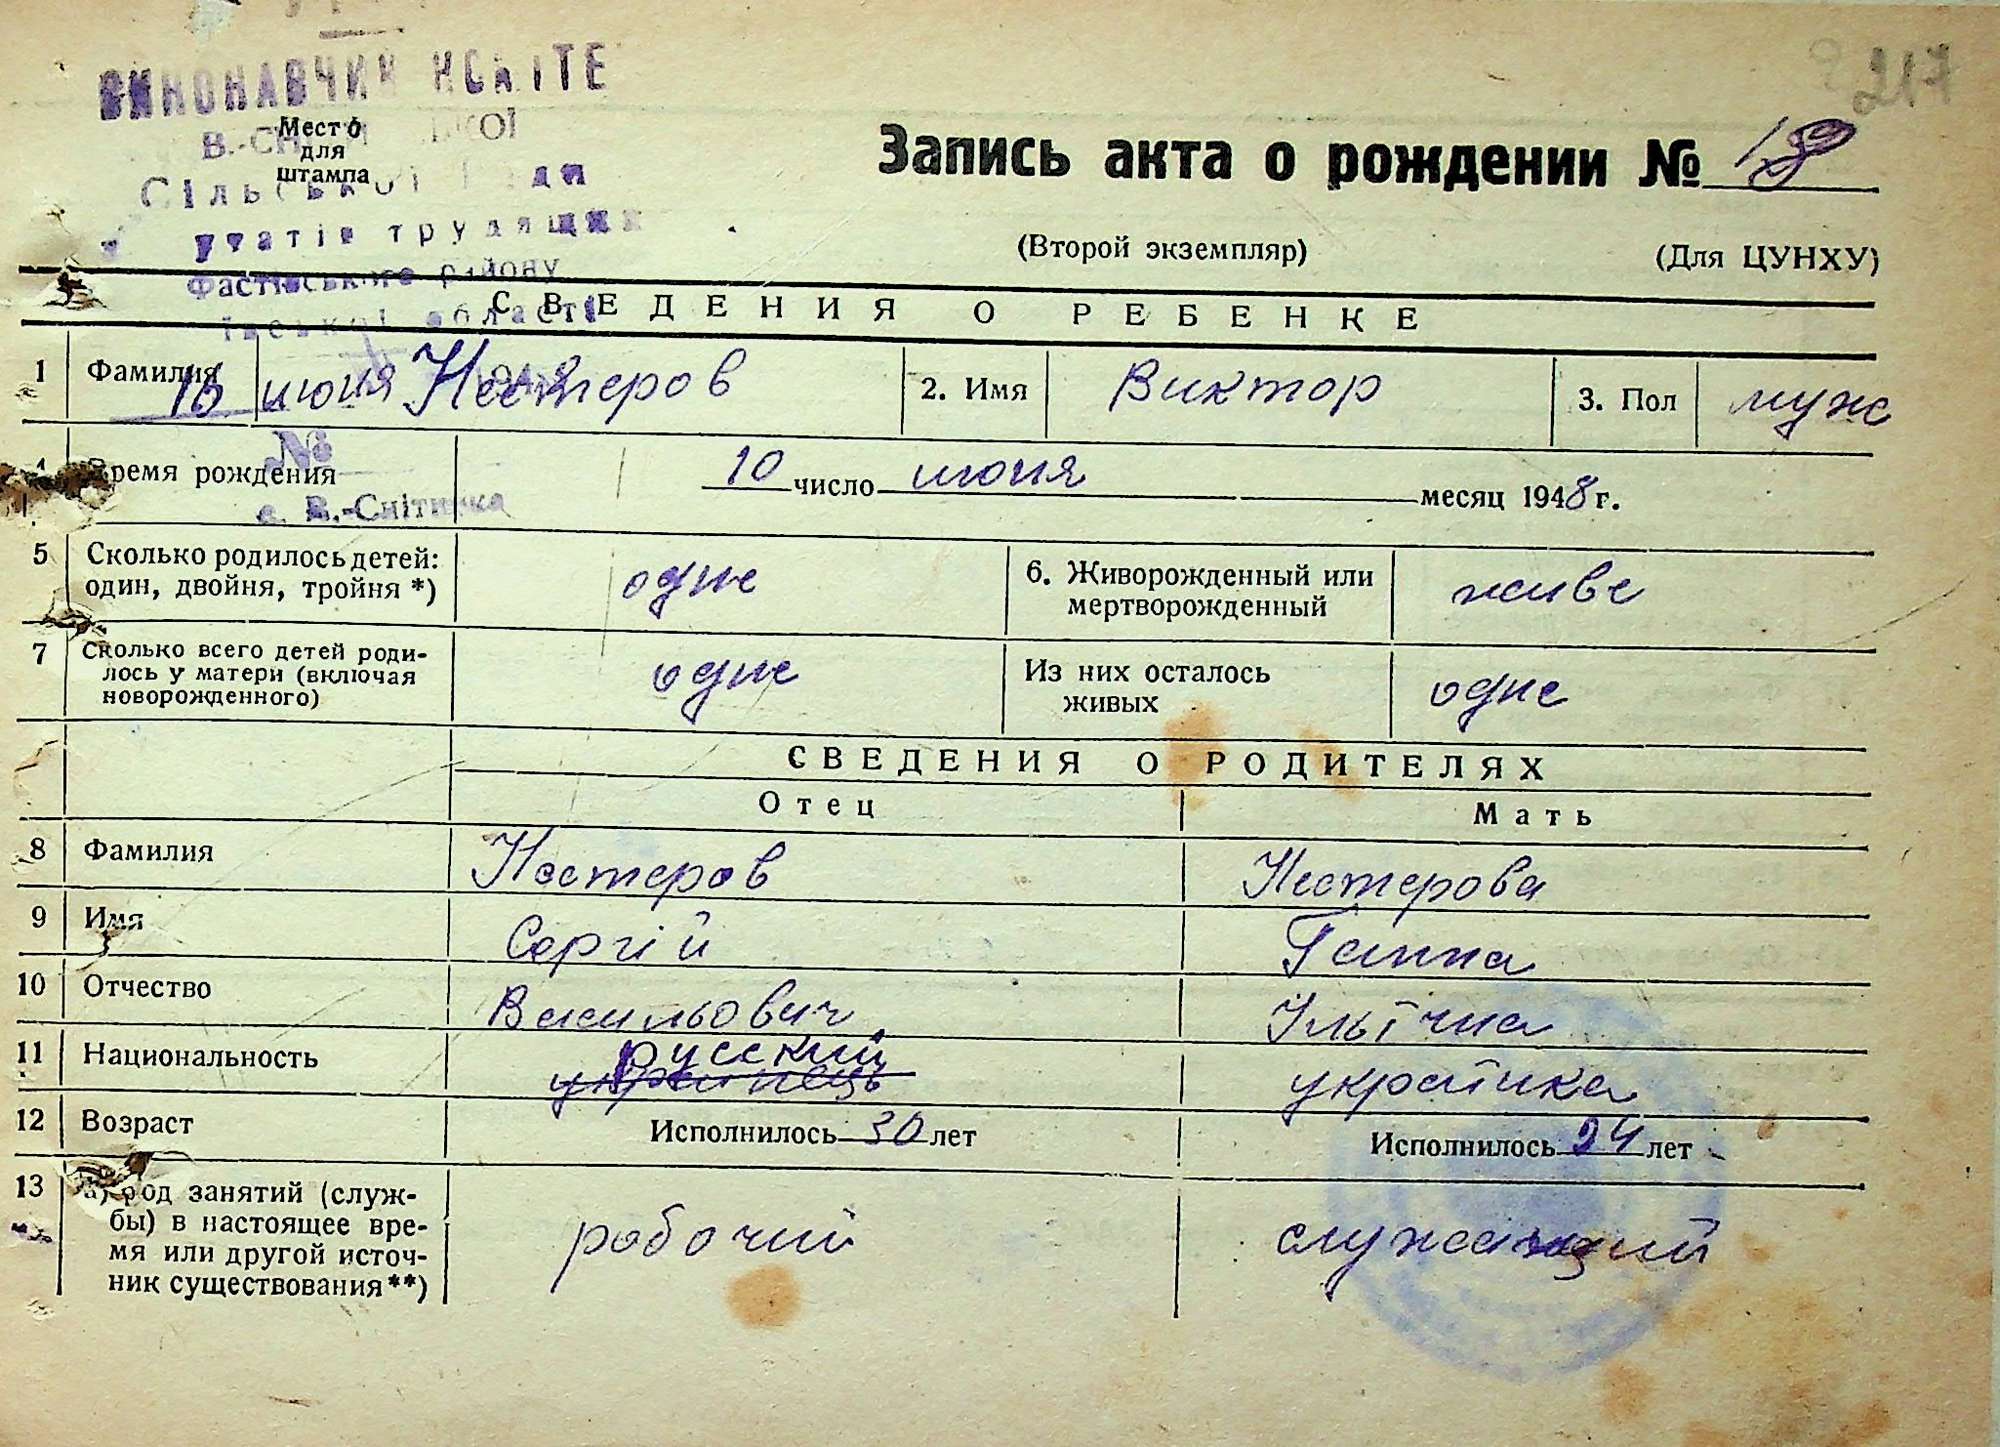 217
ВИКОНАВЧИЙ КОМІТЕ
Место
для
штампа
Сільської Ради
утатів трудящих
Фастівського району
ської області
Запись акта о рождении №
(Второй экземпляр) (Для ЦУНХУ)
СВЕДЕНИЯ О РЕБЕНКЕ
1 Фамилия Нестеров 2. Имя Виктор 3. Пол муж
16 июня 194
№
с. В.-Снітинка
Время рождения 10 число июня месяц 1948 г.
5 Сколько родилось детей: один, двойня, тройня *) одне 6. Живорожденный или мертворожденный живе
7 Сколько всего детей роди-
лось у матери (включая
новорожденного) одне Из них осталось живых одне
СВЕДЕНИЯ О РОДИТЕЛЯХ
Отец Мать
8 Фамилия Нестеров Нестерова
9 Имя Сергій Ганна
10 Отчество Васильович Ільїчна
11 Национальность русский українець українка
12 Возраст Исполнилось 30 лет Исполнилось 24 лет
13 а) род занятий (служ-
бы) в настоящее вре-
мя или другой источ-
ник существования**) робочий служащий